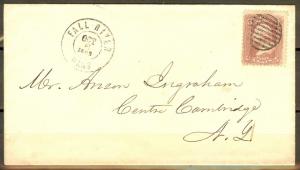 FALL RIVER
OCT
MASS
Mr. Anson Ingraham
Centre Cambridge
N.Y